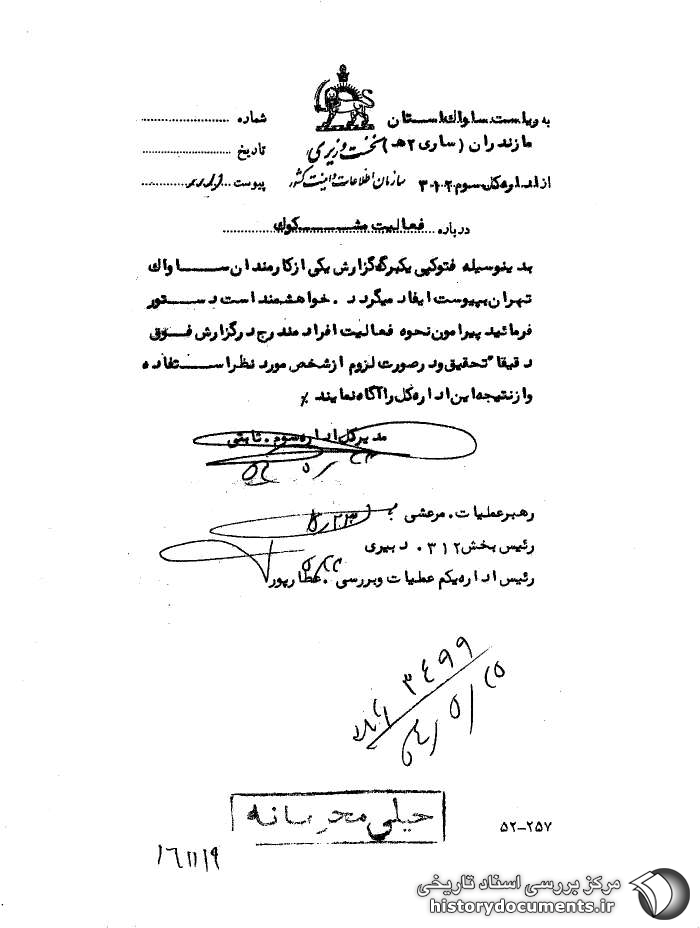 به ریاست ساواك استان
مازندران (ساری ۲ هـ)
نخست وزیری
شماره
تاریخ
از اداره كل سوم ۳۱۲
سازمان اطلاعات و امنیت کشور
پیوست دارد
درباره فعالیت مشكوك
بدینوسیله فتوكپی یكبرگ گزارش یكی از كارمندان ساواك
تهران بپیوست ایفاد میگردد . خواهشمند است دستور
فرمائید پیرامون نحوه فعالیت افراد مندرج در گزارش فوق
دقیقاً تحقیق و در صورت لزوم از شخص مورد نظر استفاده
و از نتیجه این اداره كل را آگاه نمایند ٪
مدیر كل اداره سوم . ثابتی
رهبر عملیات . مرعشی
۵/۲۳
رئیس بخش ۳۱۲ . دبیری
رئیس اداره یكم عملیات و بررسی . عطارپور
۳۴۹۹
۵۴/۵/۲۵
خیلی محرمانه
۵۲-۲۵۷
۱۶۱۱۱۹
مرکز بررسی اسناد تاریخی
historydocuments.ir